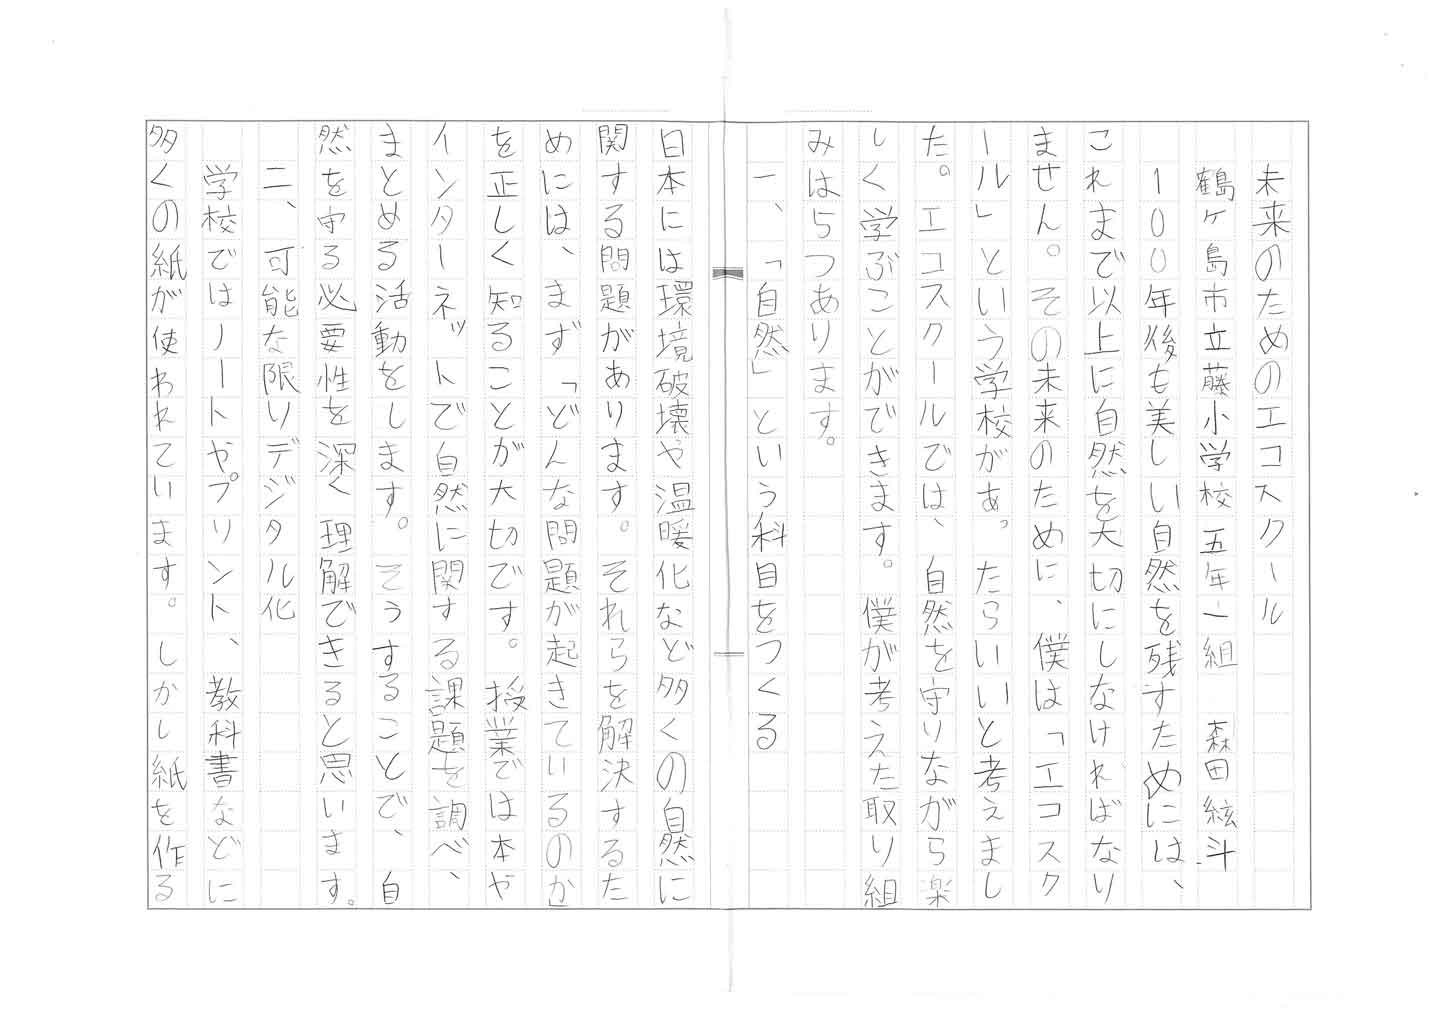 未来のためのエコスクール
鶴ヶ島市立藤小学校五年一組　森田絃斗
100年後も美しい自然を残すためには、
これまで以上に自然を大切にしなければなり
ません。その未来のために、僕は「エコスク
ール」という学校があ。たらいいと考えまし
た。エコスクールでは、自然を守りながら楽
しく学ぶことができます。僕が考えた取り組
みは5つあります。
一、「自然」という科目をつくる
日本には環境破壊や温暖化など多くの自然に
関する問題があります。それらを解決するた
めには、まず「どんな問題が起きているのか
を正しく知ることが大切です。授業では本や
インターネットで自然に関する課題を調べ、
まとめる活動をします。そうすることで、自
然を守る必要性を深く理解できると思います。
二、可能な限りデジタル化
学校ではノートやプリント、教科書などに
多くの紙が使われています。しかし紙を作る